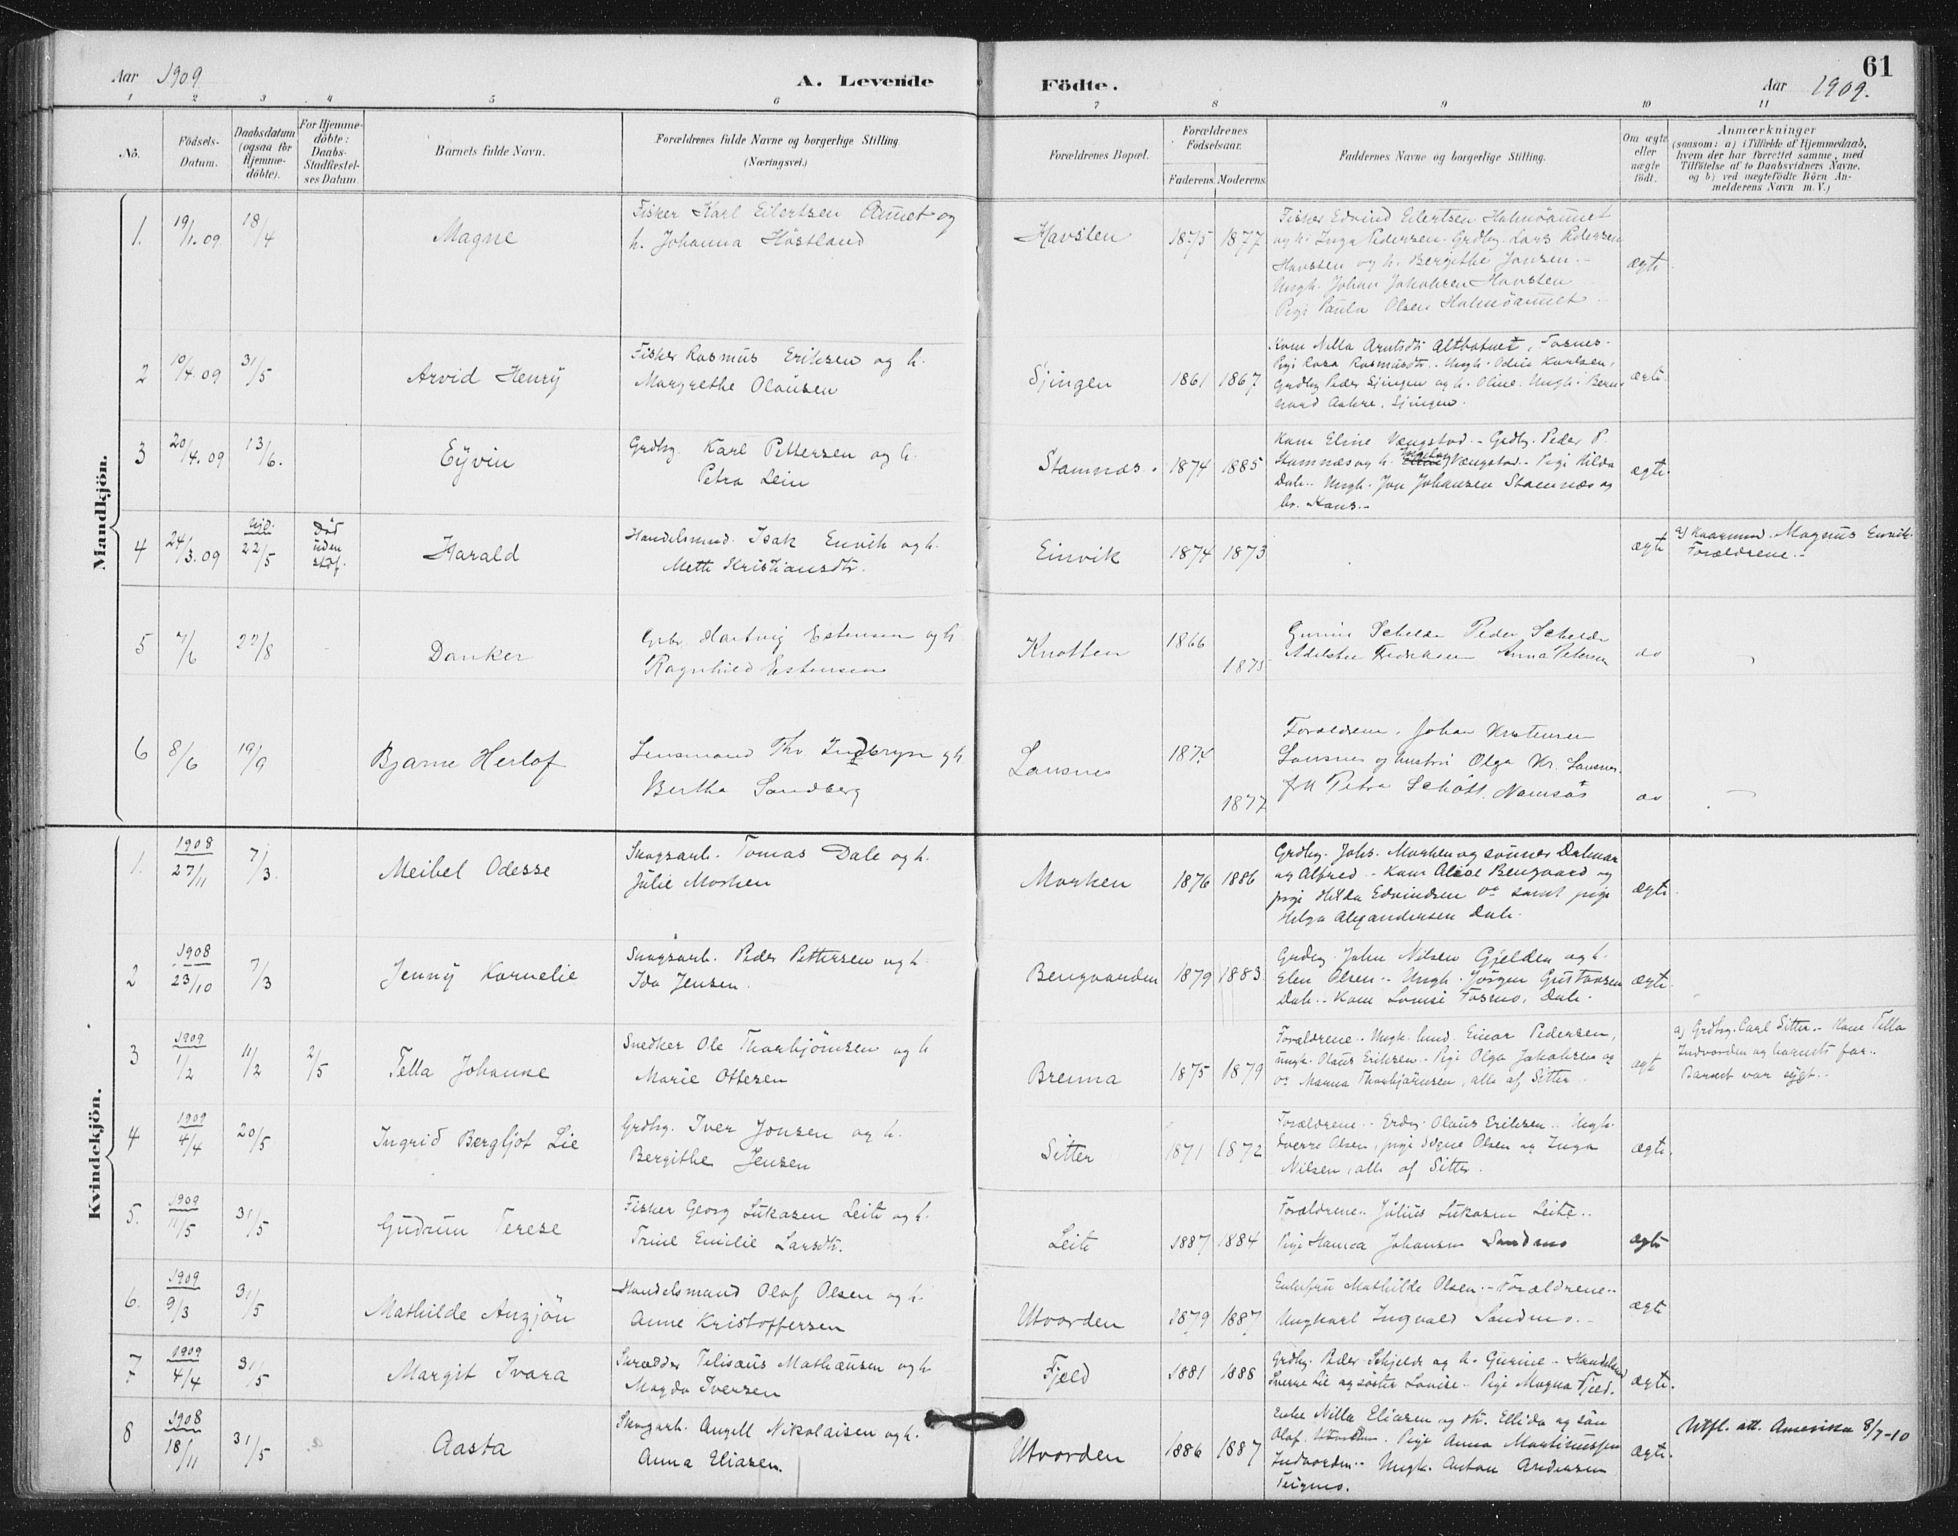 61
Aar 1909
A. Levende
Födte.
Aar 1909.
1 2 3 4 5 6 7 8 9 10 11
No.
Födsels-
Datum.
Daabsdatum
(ogsaa for
Hjemme-
döbte).
For Hjemme-
döbte:
Daabs-
Stadfæstel-
ses Datum.
Barnets fulde Navn.
Forældrenes fulde Navne og borgerlige Stilling
(Næringsvei.)
Forældrenes Bopæl.
Forældrenes
Födselsaar.
Faderens. Moderens.
Faddernes Navne og borgerlige Stilling.
Om ægte
eller
uægte
födt.
Anmærkninger
(saasom: a) i Tilfælde af Hjemmedaab,
hvem der har forrettet samme, med
Tilföielse af to Daabsvidners Navne.
og b) ved uægtefödte Börn An-
melderens Navn m. V.)
Mandkjön.
1. 19/1.09 18/4 Magne
Fisker Karl Eilertzen Aunet og
h. Johanna Höstland
Havsten 1875 1877
Fisker Edvind Eilertsen Halmöaunet
og h. Inga Pedersen. Grdbg. Lars Pedersen
Havsten og h. Bergithe Jonsen.
Ungk. Johan Jakobsen Havsten
Pige Paula Olsen Halmöaunet
ægte
2 10/4.09 31/5 Arvid Henry
Fisker Rasmus Eriksen og h.
Margrethe Olausen
Sjingen 1861 1867
Kone Nilla Arntsdtr Altbotnet, Fosnes.
Pige Rosa Rasmusdtr. Ungk. Odin Karlsen,
Grdbg Peder Sjingen og h. Oline. Ungk. Bern-
hard Aakre, Sjingen.
ægte.
3 20/4.09 13/6. Eÿvin
Grdbg. Karl Pettersen og h.
Petra Lein
Stamnæs. 1874 1885
Kone Eline Vængstad. Grdbg. Peder P.
Stamnæs og h. Vængstad. Pige Hilda
Dale. Ungk. Jon Johansen Stamnæs og
br. Hans.
ægte.
4 24/3.09 hjd. 22/5 Död
uden
stdf. Harald
Handelsmnd. Isak Einvik og h.
Mette Kristiansdtr.
Einvik 1874 1873 ægte
a) Magnus Einvik.
Forældrene.
5 7/6 22/8 Danker
Gbr. Hartvig Estensen og h
Ragnhild Estensen
Knotten 1866 1875
Gurine Schelde Peder Schelde
Fredriksen Anna Petersen
do
6 8/6 19/9 Bjarne Herlof
Lensmand Thv Inderbryn og h
Bertha Sandberg
Lansnes 1874 1877
Forældrene. Johan Kristensen
Lansnes og hustru Olga Kr. Lansnes.
frk Petra Schött, Namsos
do
Kvindekjön.
1. 1908 27/11 7/3. Meibel Odesse
Skogsarb. Tomas Dale og h.
Julie Morken
Morken 1876 1886
Grdbg. Johs. Morken og sönner Dalmar
og Alfred. Kone Alise Bengaard og
pige Hilda Edvindsen samt pige
Helga Alexandersen Dale.
ægte.
2 1908 23/10 7/3 Jennÿ Kornelie
Skogsarb. Peder Pettersen og h.
Ida Jensen.
Bengaarden 1879 1883.
Grdbg. John Nilsen Gjelden og h.
Elen Olsen. Ungk. Jörgen Gustavsen
Dale. Kone Lovise Fosmo, Dale.
ægte.
3 1909 1/2 11/2 2/5 Tella Johanne
Snedker Ole Thorbjörnsen og h
Marie Ottesen
Brenna 1875 1879
Forældrene. Ungk. Einar Pedersen,
ungk. Olaus Eriksen. Pige Olga Jakobsen og
Manna Thorbjörnsen, alle af Sitter.
ægte
a) Grdbg. Carl Sitter. Kone Tella
Indvorden og barnets far.
Barnet var sygt.
4 1909 4/4 20/5 Ingrid Bergljot Lie
Grdbg. Iver Jonsen og h.
Bergithe Jensen
Sitter 1871 1872
Forældrene. Grdbg. Olaus Eriksen. Ungk.
Sverre Olsen, pige Signe Olsen og Inga
Nilsen, alle af Sitter.
ægte.
5. 1909 11/5 31/5 Gudrun Terese
Fisker Georg Lukasen Leite og h.
Trine Emilie Larsdtr.
Leite 1887 1884
Forældrene. Julius Lukasen Leite.
Pige Hanna Johansen Sandmo
ægte
6. 1909 9/3 31/5 Mathilde Angjön
Handelsmand Olaf Olsen og h.
Anne Kristoffersen
Utvorden 1879 1887
Enkefru Mathilde Olsen. Forældrene.
Ungkarl Ingvald Sandmo.
ægte
7 1909 4/4 31/5 Margit Ivara
Skrædder Tilisæus Mathæusen og h
Magda Iversen
Fjeld 1881 1888
Grdbg. Peder Schjelde og h. Gurine. Handelsmd
Sverre Lie og söster Lovise. Pige Magna Fjeld.
ægte.
8 1908 18/11 31/5 Aasta
Skogarb. Angell Nikolaisen og h.
Anna Eliasen.
Utvorden 1886 1887
Enke Nilla Eliasen og dtr. Ellida og sön
Olaf. Pige Anna Martinussen
Indvorden. Ungk. Anton Andersen
Teigmo.
ægte.
Utfl. att. Amerika 8/7-10